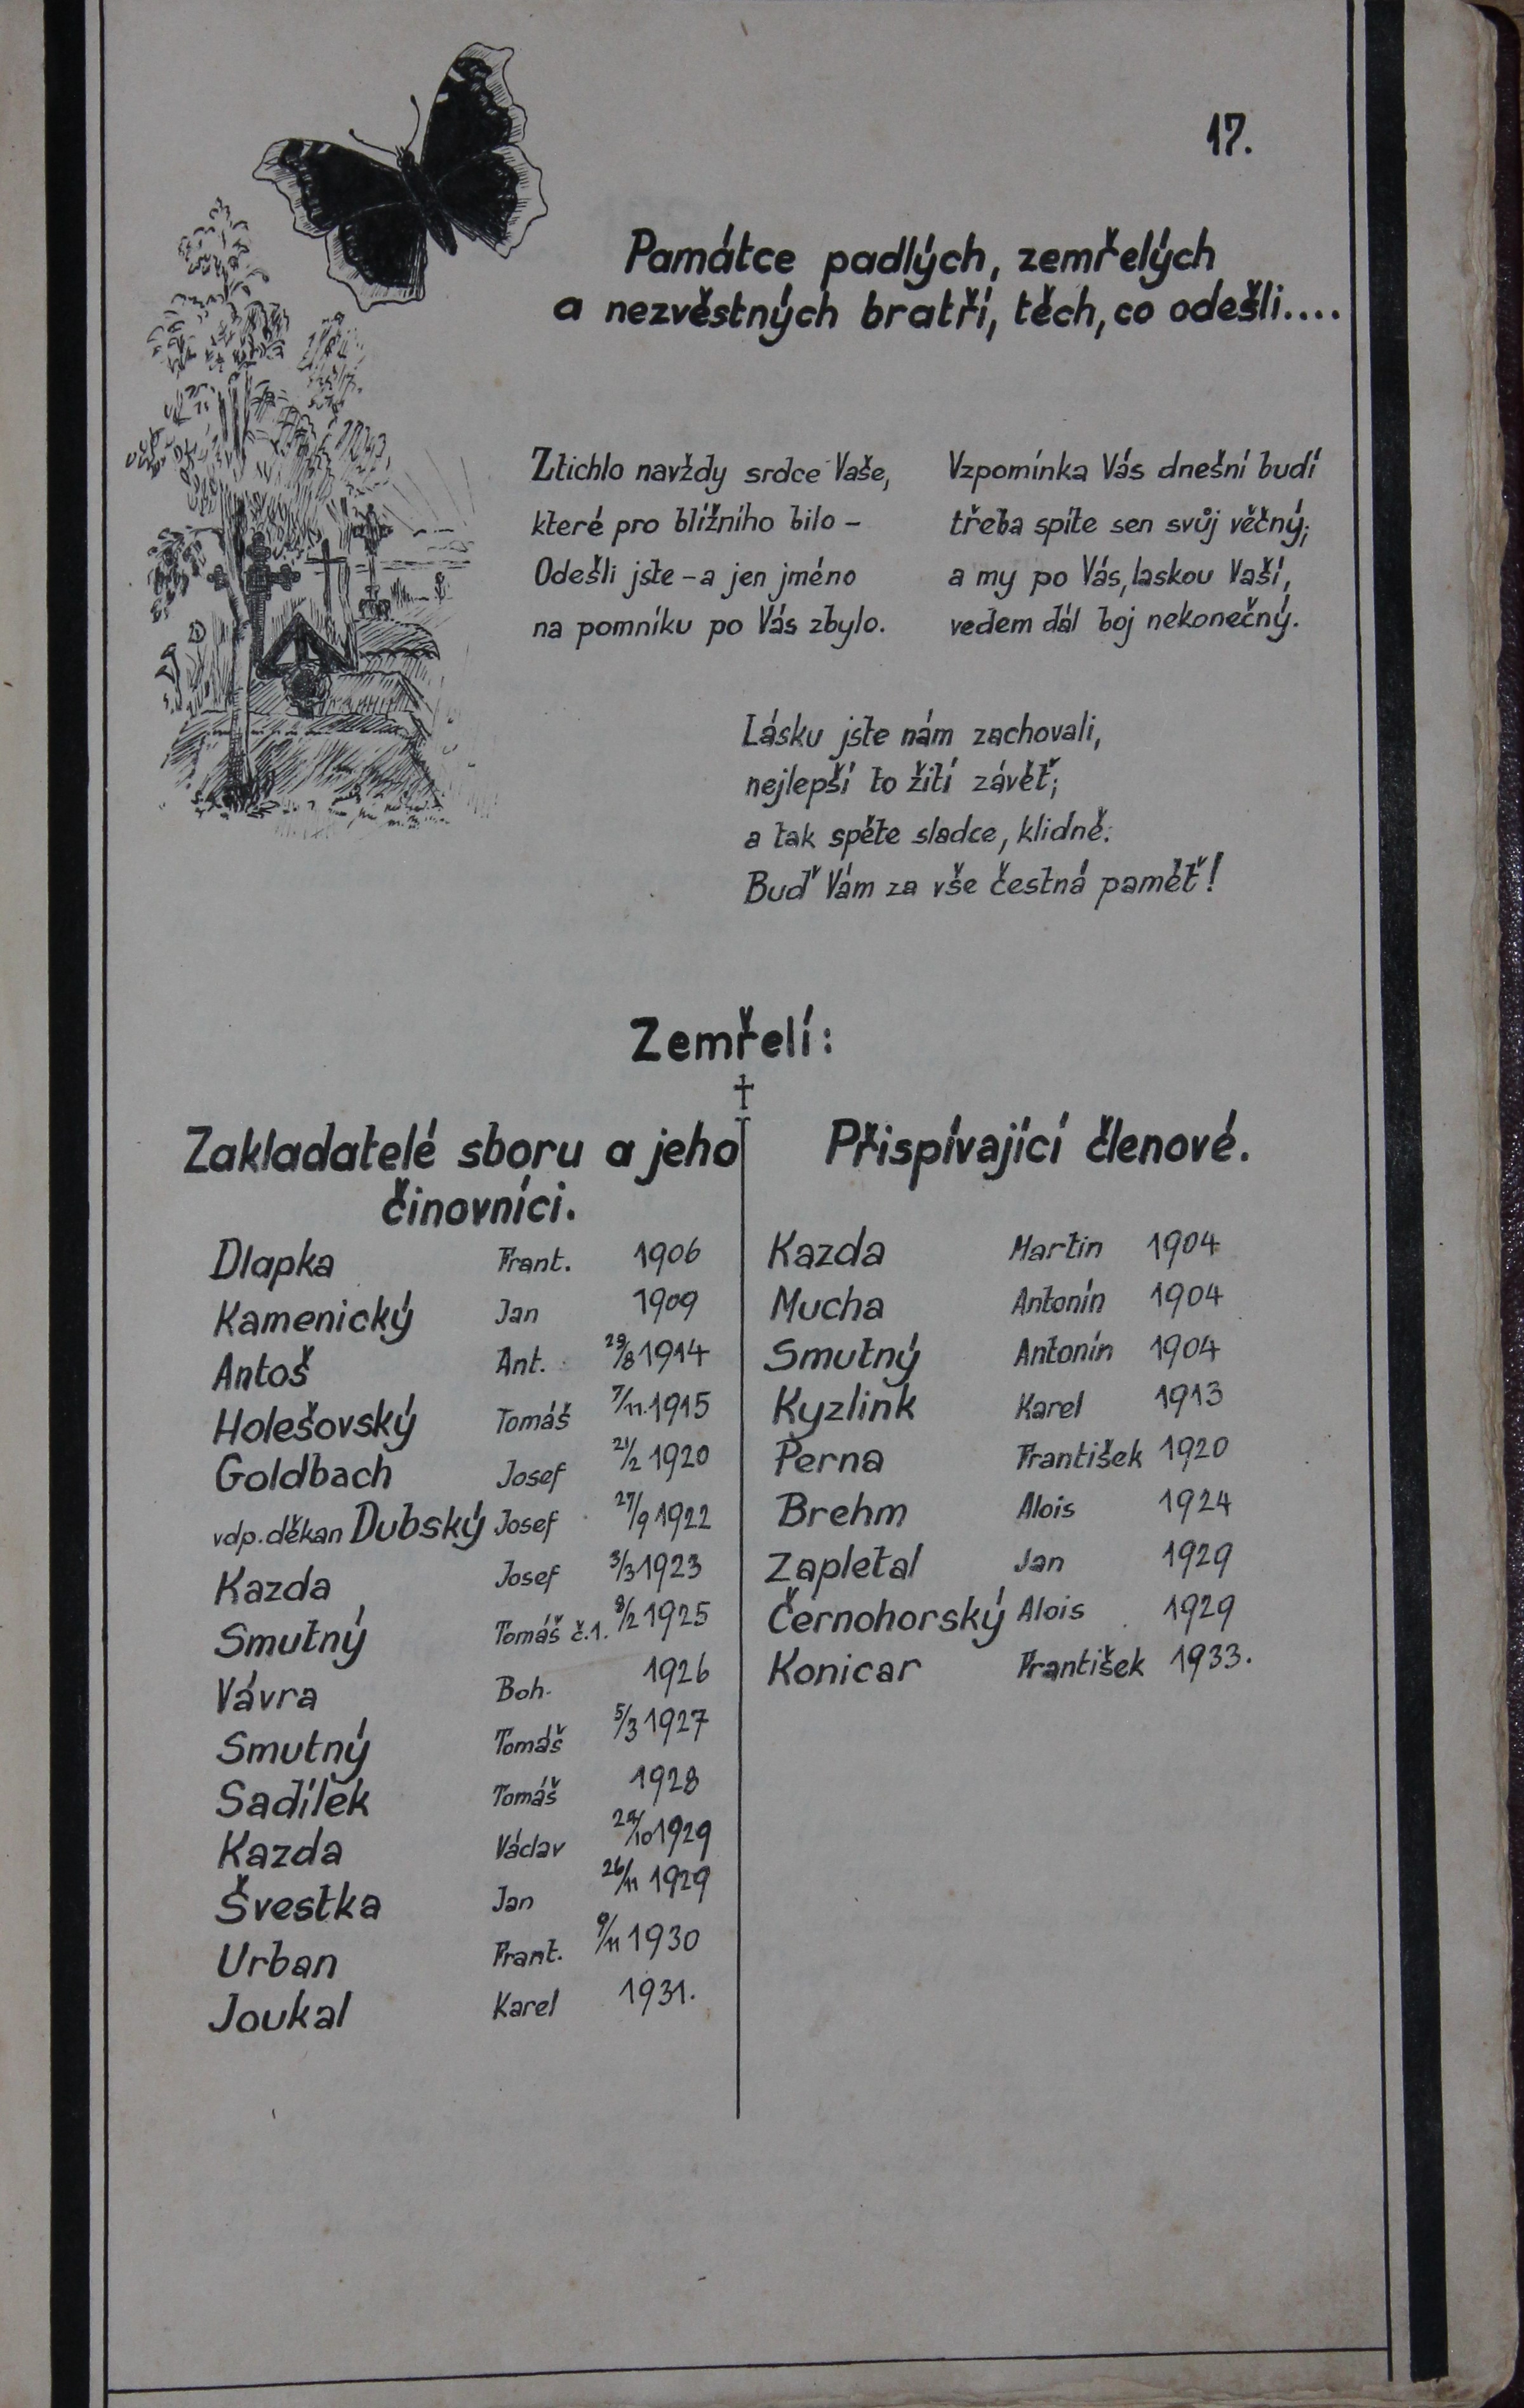 17.
Památce padlých, zemřelých
a nezvěstných bratří, těch, co odešli....
Ztichlo navždy srdce Vaše,
které pro bližního bilo –
Odešli jste – a jen jméno
na pomníku po Vás zbylo.
Vzpomínka Vás dnešní budí
třeba spíte sen svůj věčný;
a my po Vás, laskou Vaší,
vedem dál boj nekonečný.
Lásku jste nám zachovali,
nejlepší to žití závěť;
a tak spěte sladce, klidně:
Buď Vám za vše čestná paměť!
Zemřelí:
†
Zakladatelé sboru a jeho
činovníci.
Dlapka Frant. 1906
Kamenický Jan 1909
Antoš Ant. 29/8 1914
Holešovský Tomáš 7/11. 1915
Goldbach Josef 21/2 1920
vdp. děkan Dubský Josef 27/9 1922
Kazda Josef 3/3 1923
Smutný Tomáš č.1. 8/2 1925
Vávra Boh. 1926
Smutný Tomáš 5/3 1927
Sadílek Tomáš 1928
Kazda Václav /10 1929
Švestka Jan 26/11 1929
Urban Frant. 9/11 1930
Joukal Karel 1931.
Přispívající členové.
Kazda Martin 1904
Mucha Antonín 1904
Smutný Antonín 1904
Kyzlink Karel 1913
Perna František 1920
Brehm Alois 1924
Zapletal Jan 1929
Černohorský Alois 1929
Konicar František 1933.